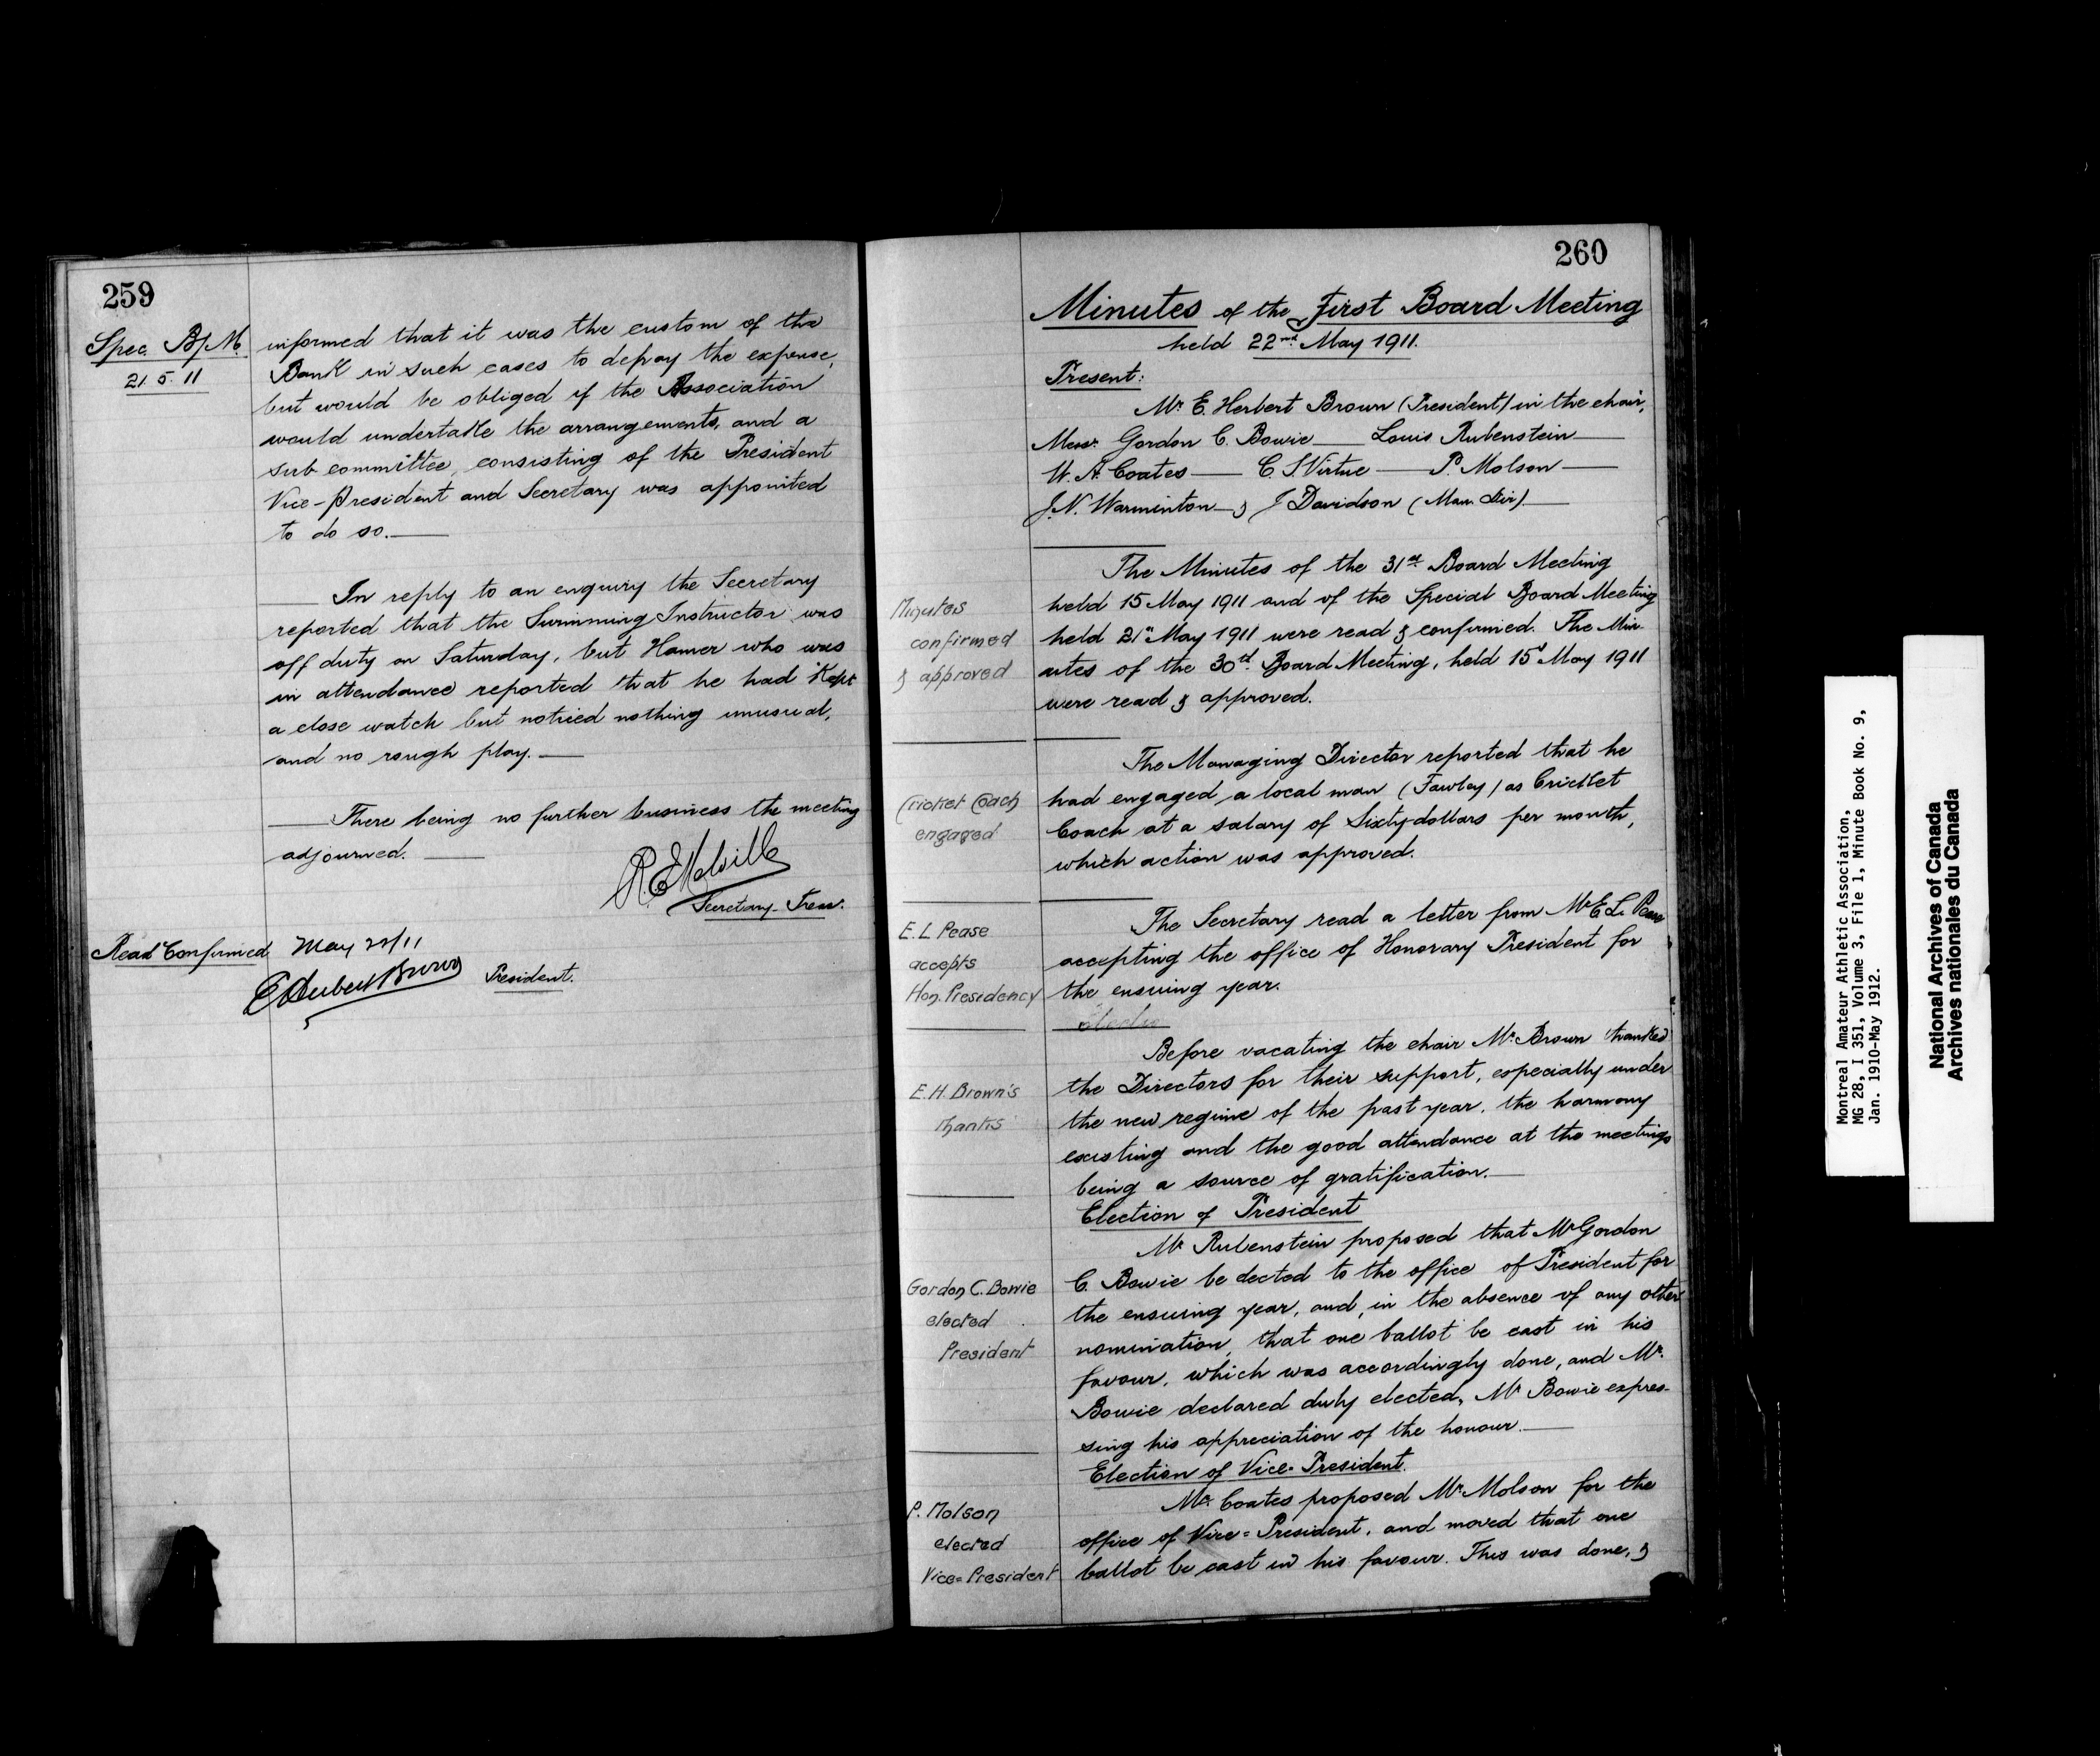 259
Spec. B/M.
21.5.11
informed that it was the custom of the
Bank in such cases to defray the expense,
but would be obliged if the Association
would undertake the arrangements, and a
sub committee, consisting of the President
Vice-President and Secretary was appointed
to do so.
In reply to an enquiry the Secretary
reported that the Swimming Instructor was
off duty on Saturday, but Hamer who was
in attendance reported that he had kept
a close watch but noticed nothing unusual,
and no rough play.
There being no further business the meeting
adjourned.
R. E. Melville
Secretary-Treas.
Read Confirmed May 22/11
E Herbert Brown President.
260
Minutes of the First Board Meeting
held 22nd May 1911.
Present:
Mr. E. Herbert Brown (President) in the chair,
Messr. Gordon C. Bowie — Louis Rubenstein —
W. A. Coates — C. S. Virtue — P. Molson —
J. N. Warminton — & J Davidson (Man. Dir). —
Minutes
confirmed
& approved
The Minutes of the 31st Board Meeting
held 15 May 1911 and of the Special Board Meeting
held 21st May 1911 were read & confirmed. The Min-
utes of the 30th Board Meeting, held 15 May 1911
were read & approved.
Cricket Coach
engaged
The Managing Director reported that he
had engaged a local man (Fawley) as Cricket
Coach at a salary of Sixty dollars per month,
which action was approved.
E. L Pease
accepts
Hon. Presidency
The Secretary read a letter from Mr E. L. Pease
accepting the office of Honorary President for
the ensuing year.
E. H. Brown's
thanks
Before vacating the chair Mr. Brown thanked
the Directors for their support, especially under
the new regime of the past year, the harmony
existing and the good attendance at the meetings
being a source of gratification.
Election of President
Gordon C. Bowie
elected
President
Mr Rubenstein proposed that Mr Gordon
C. Bowie be elected to the office of President for
the ensuing year, and, in the absence of any other
nomination, that one ballot be cast in his
favour, which was accordingly done, and Mr.
Bowie declared duly elected, Mr Bowie expres-
sing his appreciation of the honour.
Election of Vice-President.
P. Molson
elected
Vice=President
Mr. Coates proposed Mr Molson for the
office of Vice=President, and moved that one
ballot be cast in his favour. This was done, &
Montreal Amateur Athletic Association,
MG 28, I 351, Volume 3, File 1, Minute Book No. 9,
Jan. 1910-May 1912.
National Archives of Canada
Archives nationales du Canada